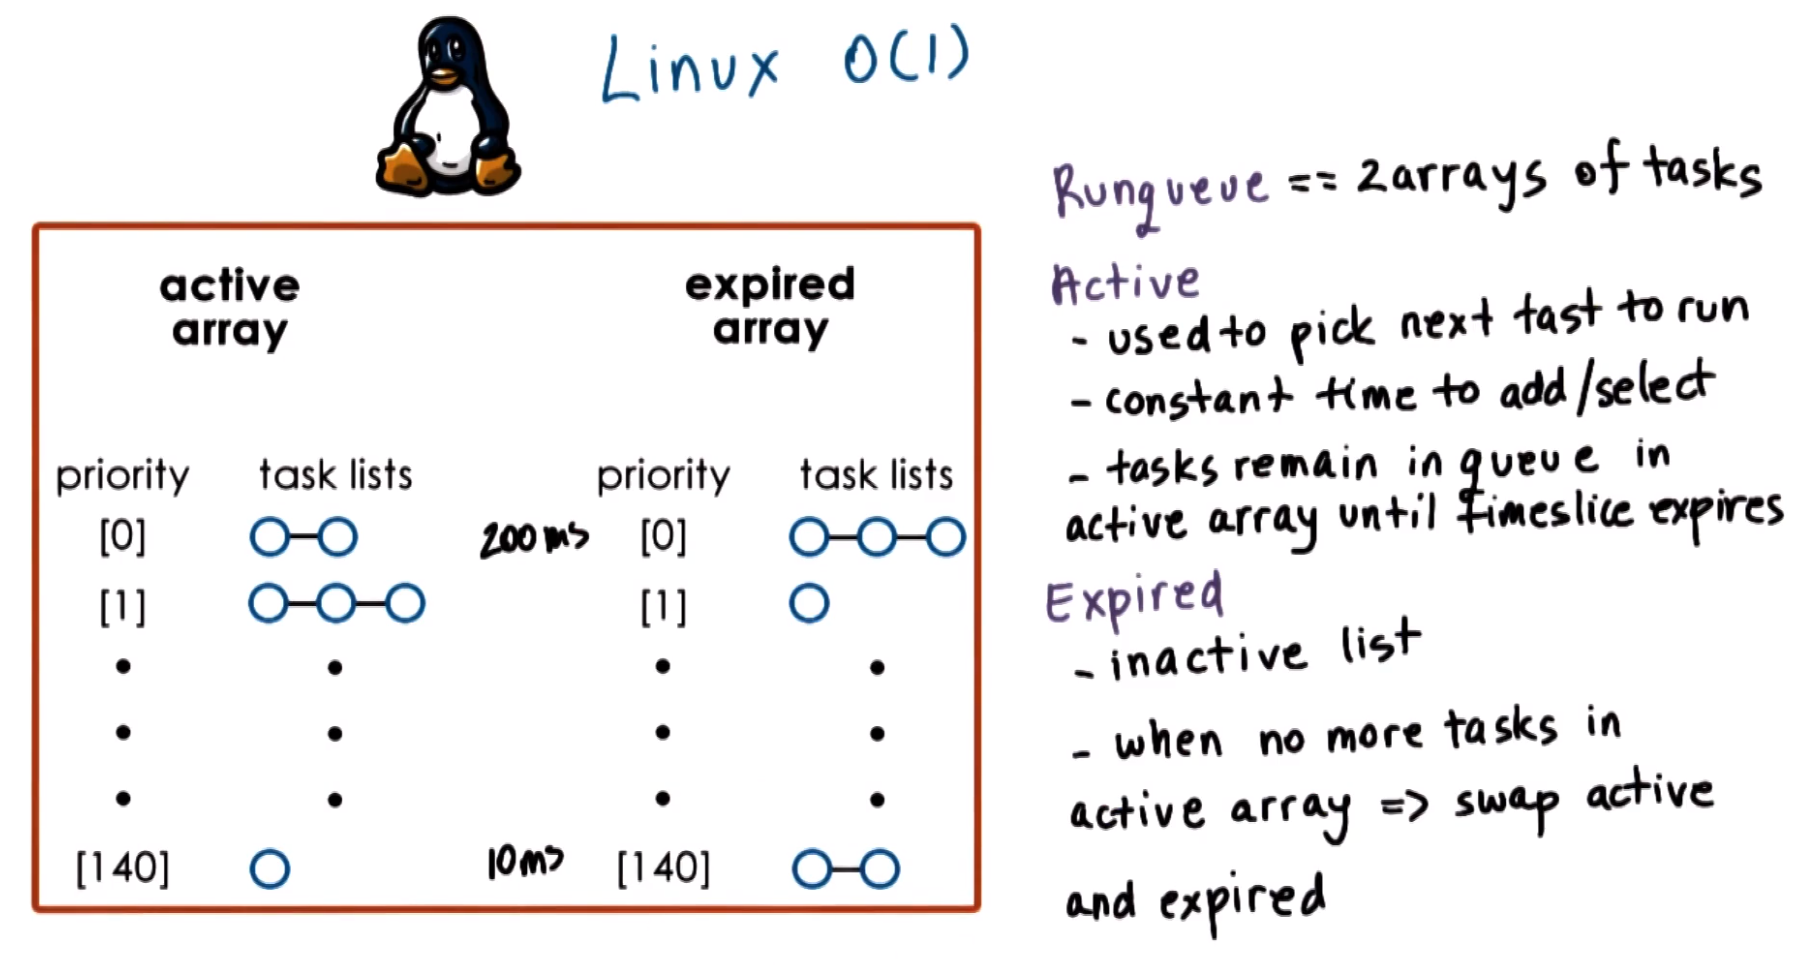 Linux O(1)
active
array
expired
array
priority task lists priority task lists
[0] 200ms [0]
[1] [1]
[140] 10ms [140]
Runqueue == 2 arrays of tasks
Active
- used to pick next tast to run
- constant time to add/select
- tasks remain in queue in
active array until timeslice expires
Expired
- inactive list
- when no more tasks in
active array => swap active
and expired